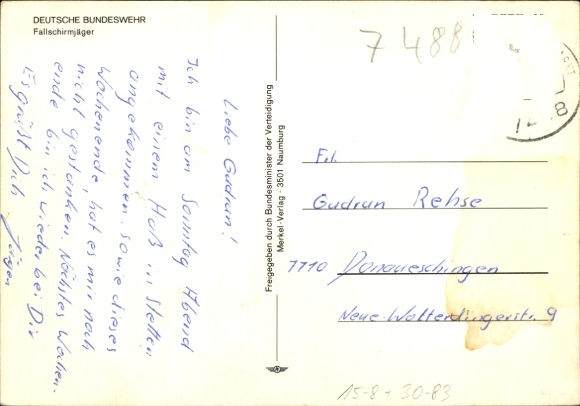 DEUTSCHE BUNDESWEHR
Fallschirmjäger
7488
Liebe Gudrun!
Ich bin am Sonntag Abend
mit einem Haß in Stetten
angekommen. So wie dieses
Wochenende, hat es mir noch
nicht gestunken. Nächstes Wochen-
ende bin ich wieder bei Dir
Es grüßt Dich Jürgen
Freigegeben durch Bundesminister der Verteidigung
Merkel-Verlag · 3501 Naumburg
Frl.
Gudrun Rehse
7710 Donaueschingen
Neue-Wolterdingerstr. 9
15-8+30-83